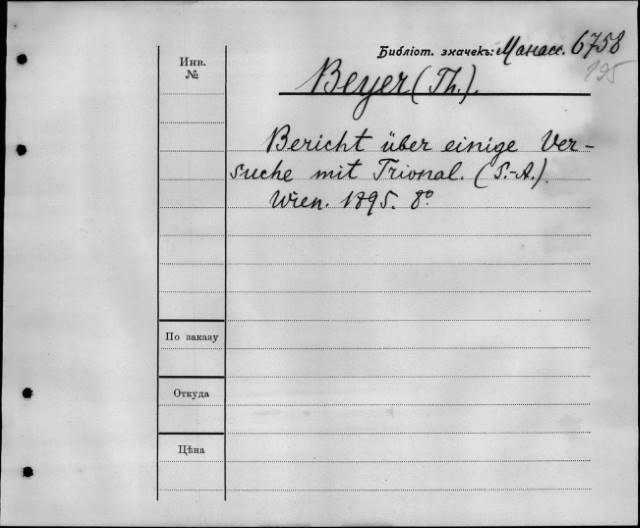 Библіот. значекъ: Манас. 6758
195
Инв.
№
Beyer (Th.).
Bericht über einige Ver-
suche mit Trional. (S.-A.).
Wien. 1895. 8°
По заказу
Откуда
Цѣна